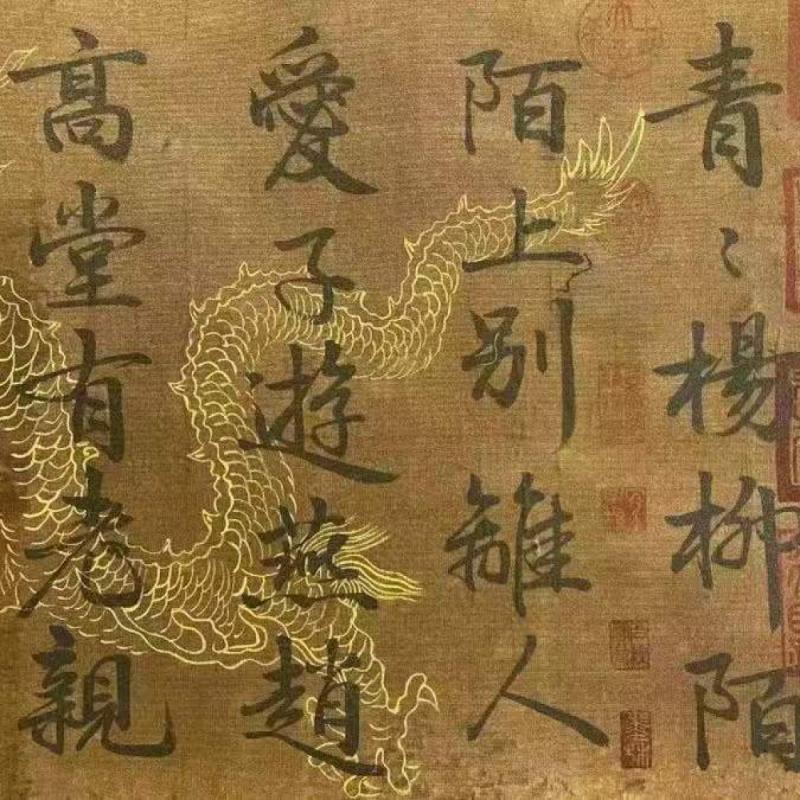 青〻楊柳陌
陌上別離人
愛子遊燕趙
高堂有老親